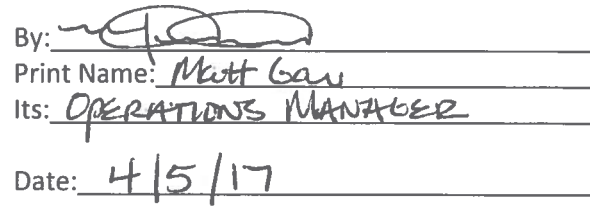 By:
Print Name: Matt Gau
Its: OPERATIONS MANAGER
Date: 4/5/17